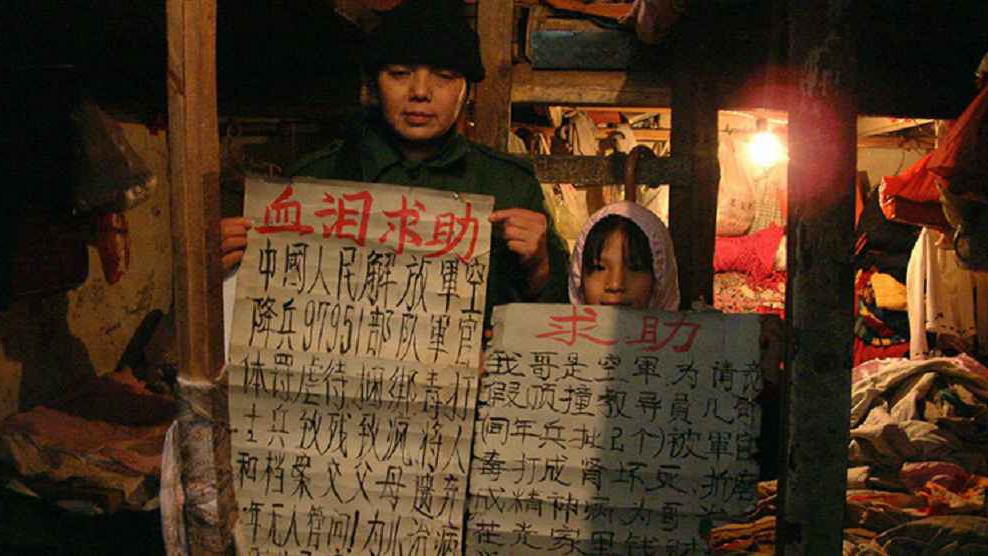 血泪求助
中國人民解放軍空
降兵97951部队軍官
体罚虐待、捆绑毒打
士兵致残致疯,将人
和档案交父母遗弃
年无人管问!为儿治病
求助
我哥是空軍,为请
假顶撞教导員几
同年兵扯2个)被軍官
毒打成肾坏死、折磨
成精神病为哥治
花光家里钱财